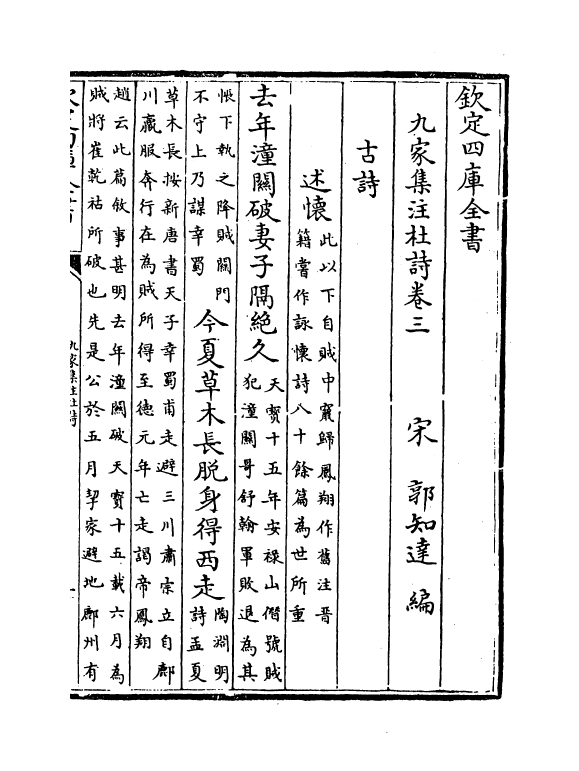 欽定四庫全書
九家集注杜詩卷三　宋　郭知達　編
古詩
述懷
此以下自賊中竄歸鳳翔作舊注晉
籍嘗作詠懷詩八十餘篇為世所重
去年潼關破妻子隔絶久
天寶十五年安禄山僭號賊
犯潼關哥舒翰軍敗退為其
帳下執之降賊關門
不守上乃謀幸蜀
今夏草木長脱身得西走
陶淵明
詩孟夏
草木長按新唐書天子幸蜀甫走避三川肅宗立自鄜
川羸服奔行在為賊所得至德元年亡走謁帝鳳翔
趙云此篇敘事甚明去年潼關破天寶十五載六月為
賊將崔乾祐所破也先是公於五月挈家避地鄜州有
九家集注杜詩